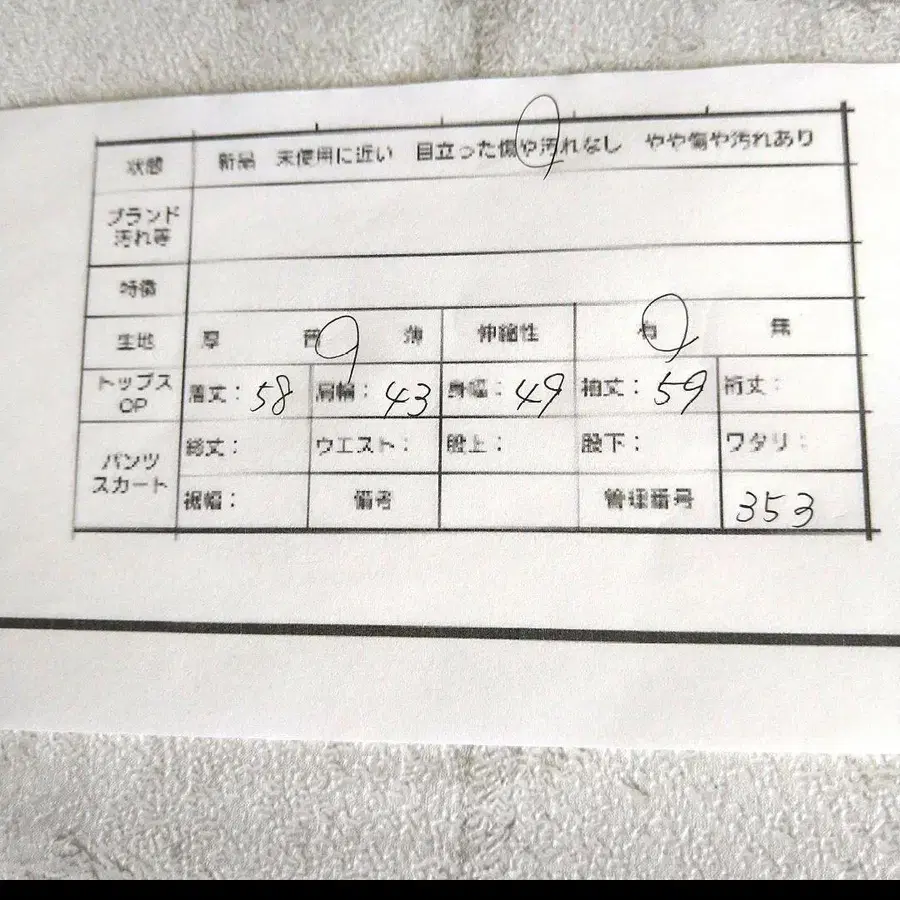 状態 新品 未使用に近い 目立った傷や汚れなし やや傷や汚れあり
ブランド
汚れ等
特徴
生地 厚 普 薄 伸縮性 有 無
トップス
OP
着丈: 58 肩幅: 43 身幅: 49 袖丈: 59 裄丈:
パンツ
スカート
総丈: ウエスト: 股上: 股下: ワタリ:
裾幅: 備考 管理番号 353